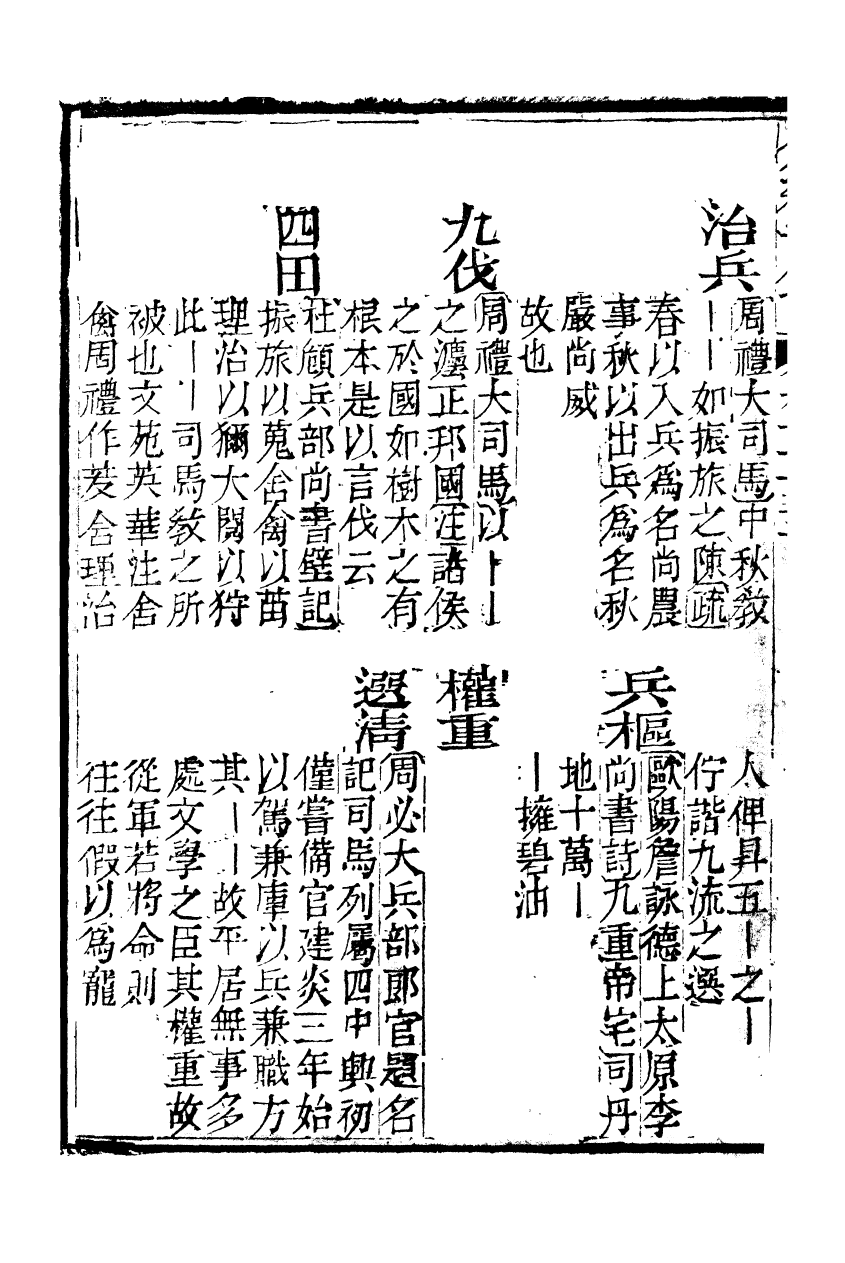 治兵
周禮大司馬中秋敎
｜｜如振旅之陳疏
春以入兵爲名尚農
事秋以出兵爲名秋
嚴尚威
故也
九伐
周禮大司馬以｜｜
之灋正邦國注諸侯
之於國如樹木之有
根本是以言伐云
四田
杜頠兵部尚書壁記
振旅以蒐舍禽以苗
理治以獮大閱以狩
此｜｜司馬敎之所
被也文苑英華注舍
禽周禮作茇舍理治
人俾昇五｜之｜
佇諧九流之選
兵樞
歐陽詹詠德上太原李
尚書詩九重帝宅司丹
地十萬｜
｜擁碧油
權重
選清
周必大兵部郎官題名
記司馬列屬四中興初
僅嘗備官建炎三年始
以駕兼庫以兵兼職方
其｜｜故平居無事多
處文學之臣其權重故
從軍若將命則
往往假以爲寵